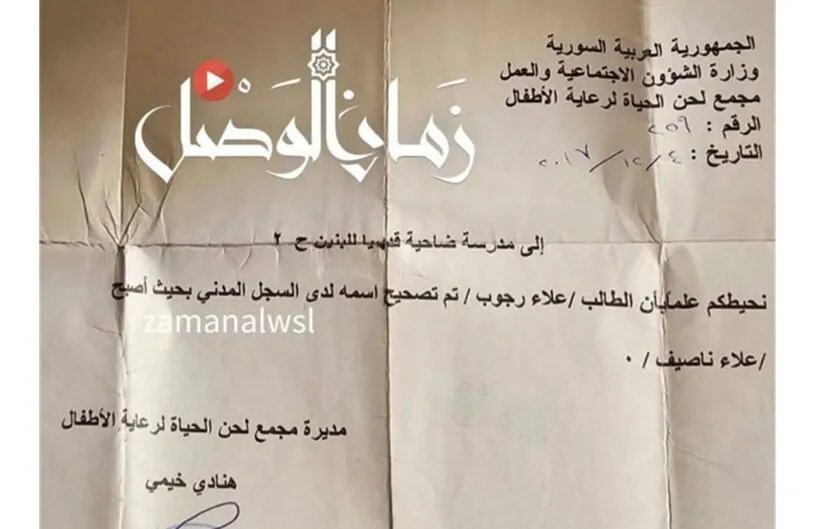 الجمهورية العربية السورية
وزارة الشؤون الاجتماعية والعمل
مجمع لحن الحياة لرعاية الأطفال
الرقم : ٢٥٩
التاريخ : ٢٠١٧/١٢/٤
زمان الوصل
إلى مدرسة ضاحية قدسيا للبنين ح ٢
نحيطكم علماً بأن الطالب /علاء رجوب / تم تصحيح اسمه لدى السجل المدني بحيث أصبح
zamanalwsl
/علاء ناصيف / ٠
مديرة مجمع لحن الحياة لرعاية الأطفال
هنادي خيمي